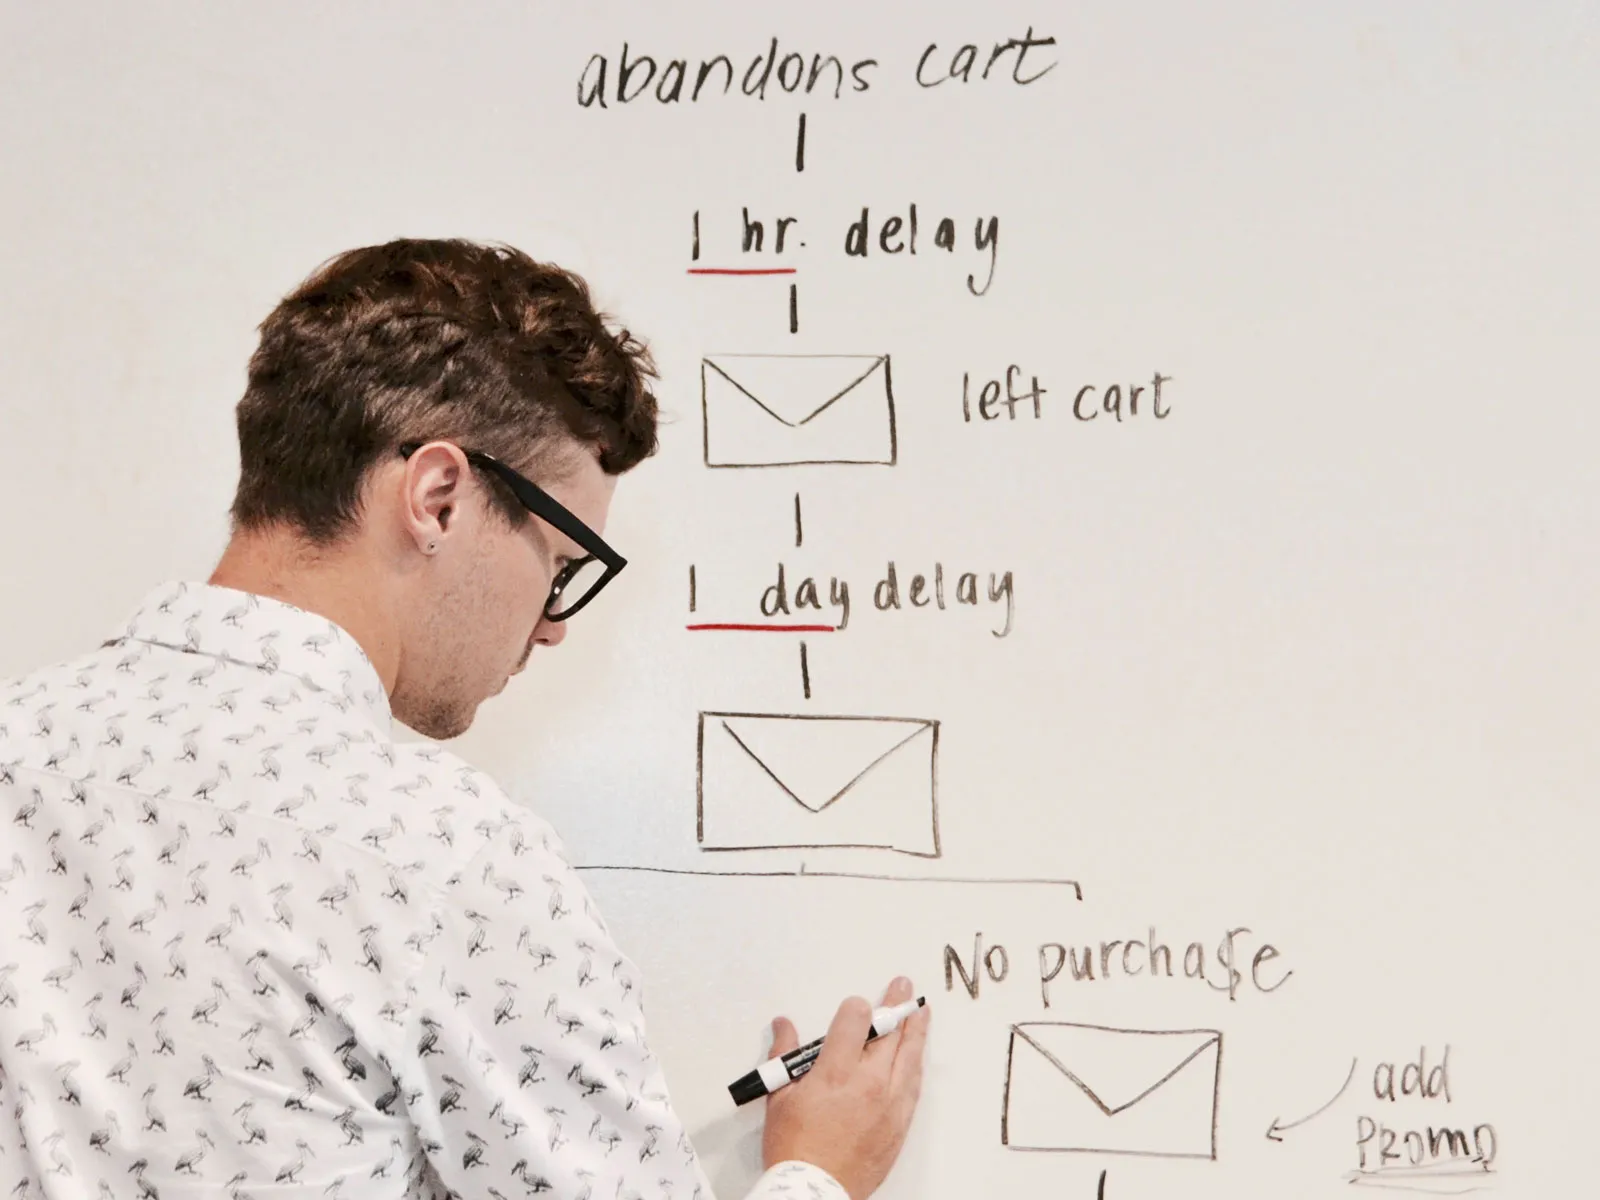 abandons cart
1 hr. delay
left cart
1 day delay
No purcha$e
add
PROMO